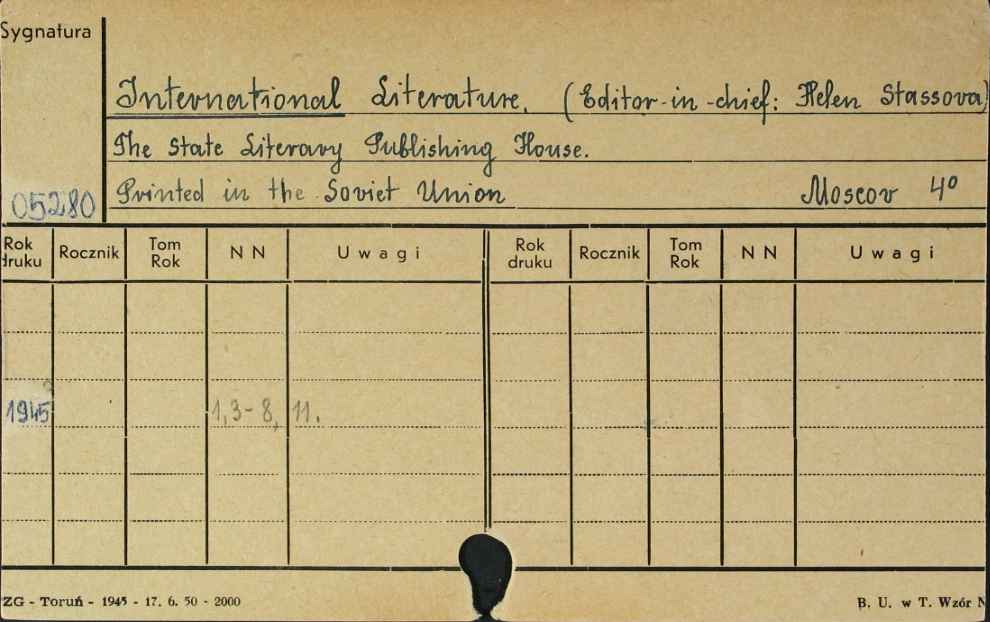 Sygnatura
International Literature. (Editor-in-chief: Helen Stassova)
The State Literary Publishing House.
05280 Printed in the Soviet Union Moscov 4°
Rok druku Rocznik Tom Rok N N Uwagi Rok druku Rocznik Tom Rok N N Uwagi
1945 1,3-8, 11.
ZG - Toruń - 1945 - 17. 6. 50 - 2000 B. U. w T. Wzór N